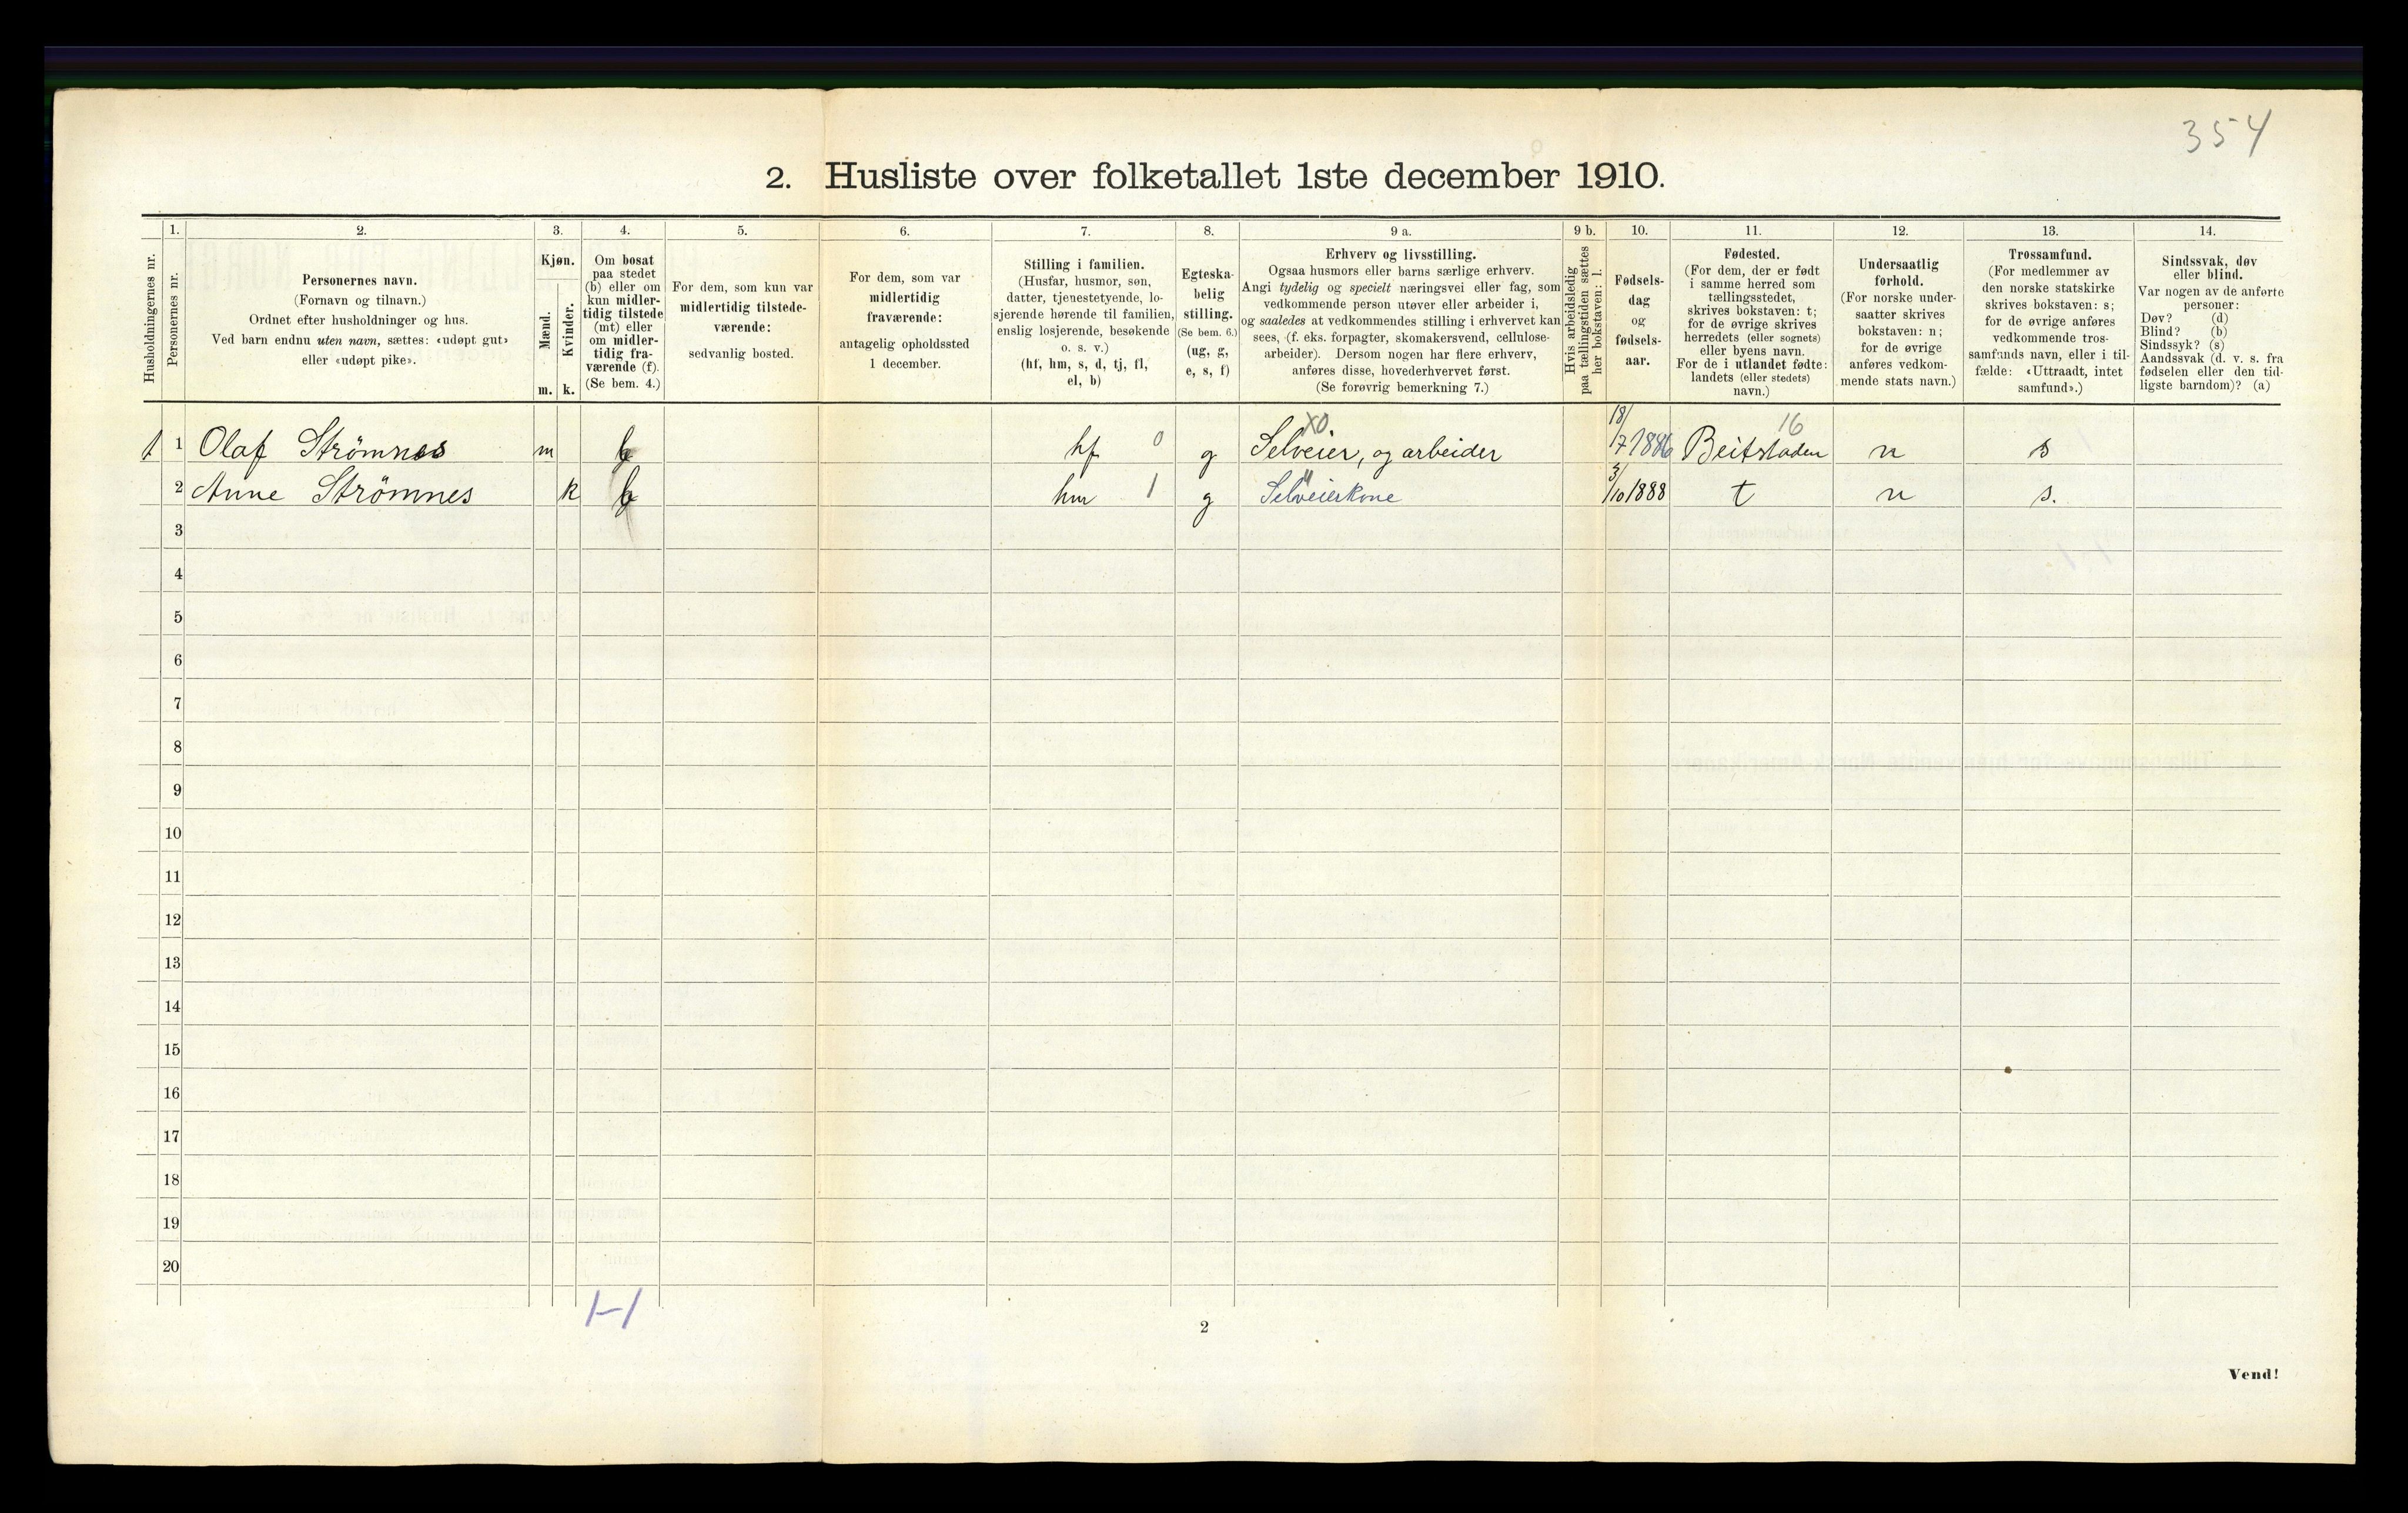 354
2. Husliste over folketallet 1ste december 1910.
1. 2. 3. 4. 5. 6. 7. 8. 9 a. 9 b. 10. 11. 12. 13. 14.
Husholdningernes nr.
Personernes nr.
Personernes navn.
(Fornavn og tilnavn.)
Ordnet efter husholdninger og hus.
Ved barn endnu uten navn, sættes: «udøpt gut»
eller «udøpt pike».
Kjøn.
Mænd.
m.
Kvinder.
k.
Om bosat
paa stedet
(b) eller om
kun midler-
tidig tilstede
(mt) eller
om midler-
tidig fra-
værende (f).
(Se bem. 4.)
For dem, som kun var
midlertidig tilstede-
værende:
sedvanlig bosted.
For dem, som var
midlertidig
fraværende:
antagelig opholdssted
1 december.
Stilling i familien.
(Husfar, husmor, søn,
datter, tjenestetyende, lo-
sjerende hørende til familien,
enslig losjerende, besøkende
o. s. v.)
(hf, hm, s, d, tj, fl,
el, b)
Egteska-
belig
stilling.
(Se bem. 6.)
(ug, g,
e, s, f)
Erhverv og livsstilling.
Ogsaa husmors eller barns særlige erhverv.
Angi tydelig og specielt næringsvei eller fag, som
vedkommende person utøver eller arbeider i,
og saaledes at vedkommendes stilling i erhvervet kan
sees, (f. eks. forpagter, skomakersvend, cellulose-
arbeider). Dersom nogen har flere erhverv,
anføres disse, hovederhvervet først.
(Se forøvrig bemerkning 7.)
Hvis arbeidsledig
paa tællingstiden sættes
her bokstaven: l.
Fødsels-
dag
og
fødsels-
aar.
Fødested.
(For dem, der er født
i samme herred som
tællingsstedet,
skrives bokstaven: t;
for de øvrige skrives
herredets (eller sognets)
eller byens navn.
For de i utlandet fødte:
landets (eller stedets)
navn.)
Undersaatlig
forhold.
(For norske under-
saatter skrives
bokstaven: n;
for de øvrige
anføres vedkom-
mende stats navn.)
Trossamfund.
(For medlemmer av
den norske statskirke
skrives bokstaven: s;
for de øvrige anføres
vedkommende tros-
samfunds navn, eller i til-
fælde: «Uttraadt, intet
samfund».)
Sindssvak, døv
eller blind.
Var nogen av de anførte
personer:
Døv? (d)
Blind? (b)
Sindssyk? (s)
Aandssvak (d. v. s. fra
fødselen eller den tid-
ligste barndom)? (a)
X0 18/ 16
1 1 Olaf Strömnes m b hf 0 g Selveier, og arbeider /7 1886 Beitstaden n s
2 Anne Strömnes k b hm 1 g Selveierkone 3/10 1888 t n s.
3
4
5
6
7
8
9
10
11
12
13
14
15
16
17
18
19
20
1-1
2
Vend!